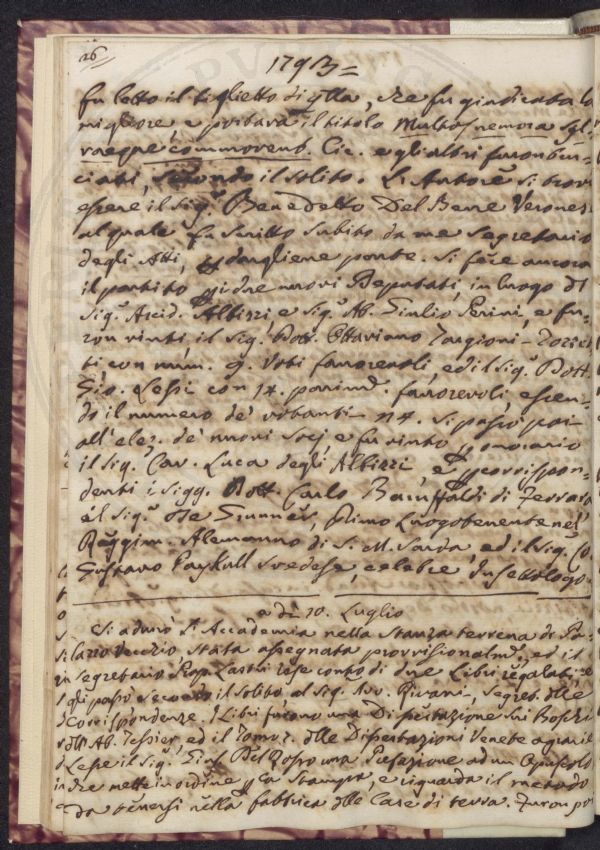 26
1793=
fu letto il biglietto di qlla, che fu giudicata la
migliore, e portava il titolo Multos nemora syl-
vaeque commovent. Cic. e gli altri furon bru-
ciati, secondo il solito. L'Autore si trovò
essere il Sig.r Benedetto Del Bene Verones
al quale fu scritto subito da me Segretario
degli Atti, p dargliene parte. Si fece ancora
il partito p i due nuovi Deputati, in luogo dl
Sig.r Accid. Albizzi, e Sig.r Ab. Giulio Perini, e fu-
ron vinti il Sig.r Dott. Ottaviano Targioni-Tozzet
ti con num. 9. Voti favorevoli, ed il Sig.r Dott
Gio. Lessi con 14. parimte. favorevoli, essen-
do il numero de' votanti 14. Si passò poi
all'elez. de' nuovi Socj e fu vinto p onorario
il Sig. Cav. Luca degli Albizzi e p corrispon-
denti i Sigg. Dott. Carlo Baruffaldi di Ferrara
e il Sig.r Primo Luogotenente nel
Reggim. Alemanno di S. M. Sarda, ed il Sig. Co.
Gustavo Paykull Svedese, celebre Insettologo.
a dì 10. Luglio
Si adunò l'Accademia nella Stanza terrena di Pa-
lazzo Vecchio stata assegnata provvisionalmte, ed il
Segretario Prop. Lastri rese conto di due Libri regalati, e
gli passò secondo il solito al Sig. Avv. Rivani, Segret. dlle
Corrispondenze. I Libri furono una Dissertazione sui Boschi
dll'Ab. Tessier, ed il Tomo 2. dlle Dissertazioni Venete agrarie
Lesse il Sig. Gius. Del Rosso una Prefazione ad un Opuscolo
che mette in ordine p la Stampa, e riguarda il metodo
da tenersi nella fabbrica dlle Case di terra. Furon poi